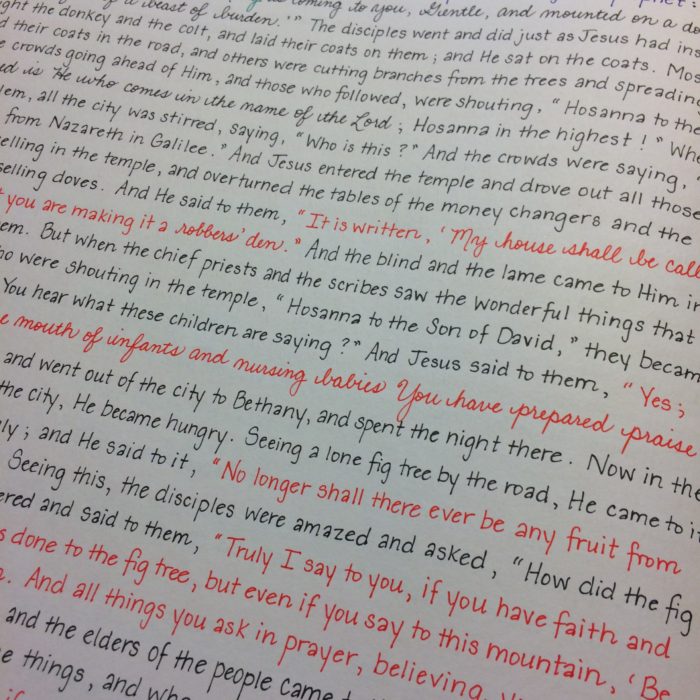 coming to you, Gentle, and mounted on a do
a beast of burden.'" The disciples went and did just as Jesus had ins
ght the donkey and the colt, and laid their coats on them; and He sat on the coats. Mos
d their coats in the road, and others were cutting branches from the trees and spreading
e crowds going ahead of Him, and those who followed, were shouting, "Hosanna to th
ed is He who comes in the name of the Lord; Hosanna in the highest!" Whe
lem, all the city was stirred, saying, "Who is this?" And the crowds were saying, "
from Nazareth in Galilee." And Jesus entered the temple and drove out all those
elling in the temple, and overturned the tables of the money changers and the
selling doves. And He said to them, "It is written, 'My house shall be call
t you are making it a robbers' den." And the blind and the lame came to Him in
em. But when the chief priests and the scribes saw the wonderful things that
ho were shouting in the temple, "Hosanna to the Son of David," they becam
You hear what these children are saying?" And Jesus said to them, "Yes;
e mouth of infants and nursing babies You have prepared praise
and went out of the city to Bethany, and spent the night there. Now in the
the city, He became hungry. Seeing a lone fig tree by the road, He came to it
ly; and He said to it, "No longer shall there ever be any fruit from
Seeing this, the disciples were amazed and asked, "How did the fig
ered and said to them, "Truly I say to you, if you have faith and
s done to the fig tree, but even if you say to this mountain, 'Be
And all things you ask in prayer, believing, y
and the elders of the people came t
e things, and who
if